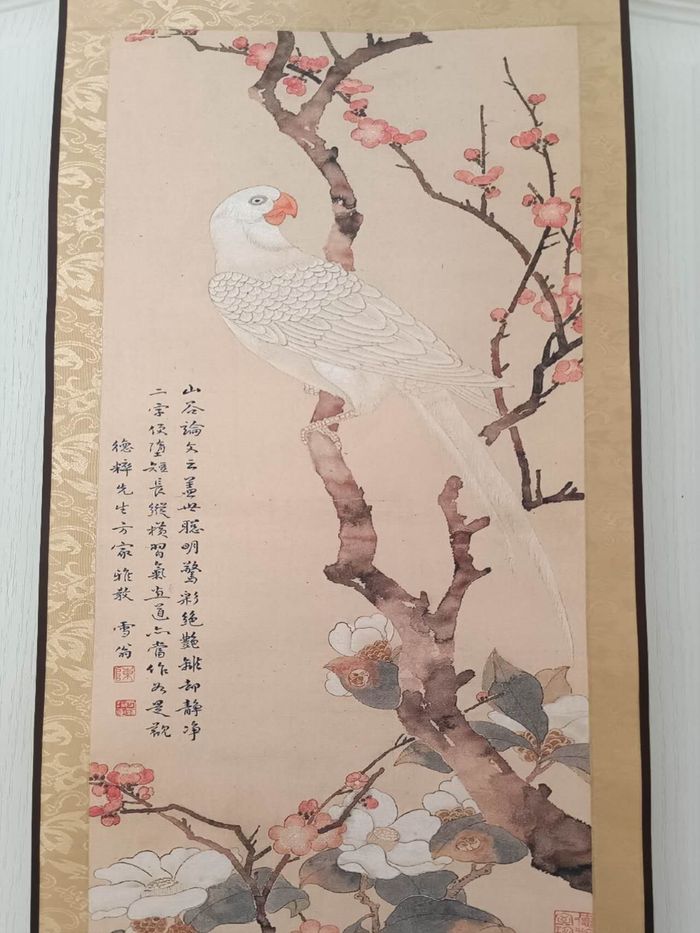 山谷論文云蓋世聰明驚彩絕艷離却靜净
二字便墮短長縱橫習氣画道亦當作如是觀
德粹先生方家雅教 雪翁